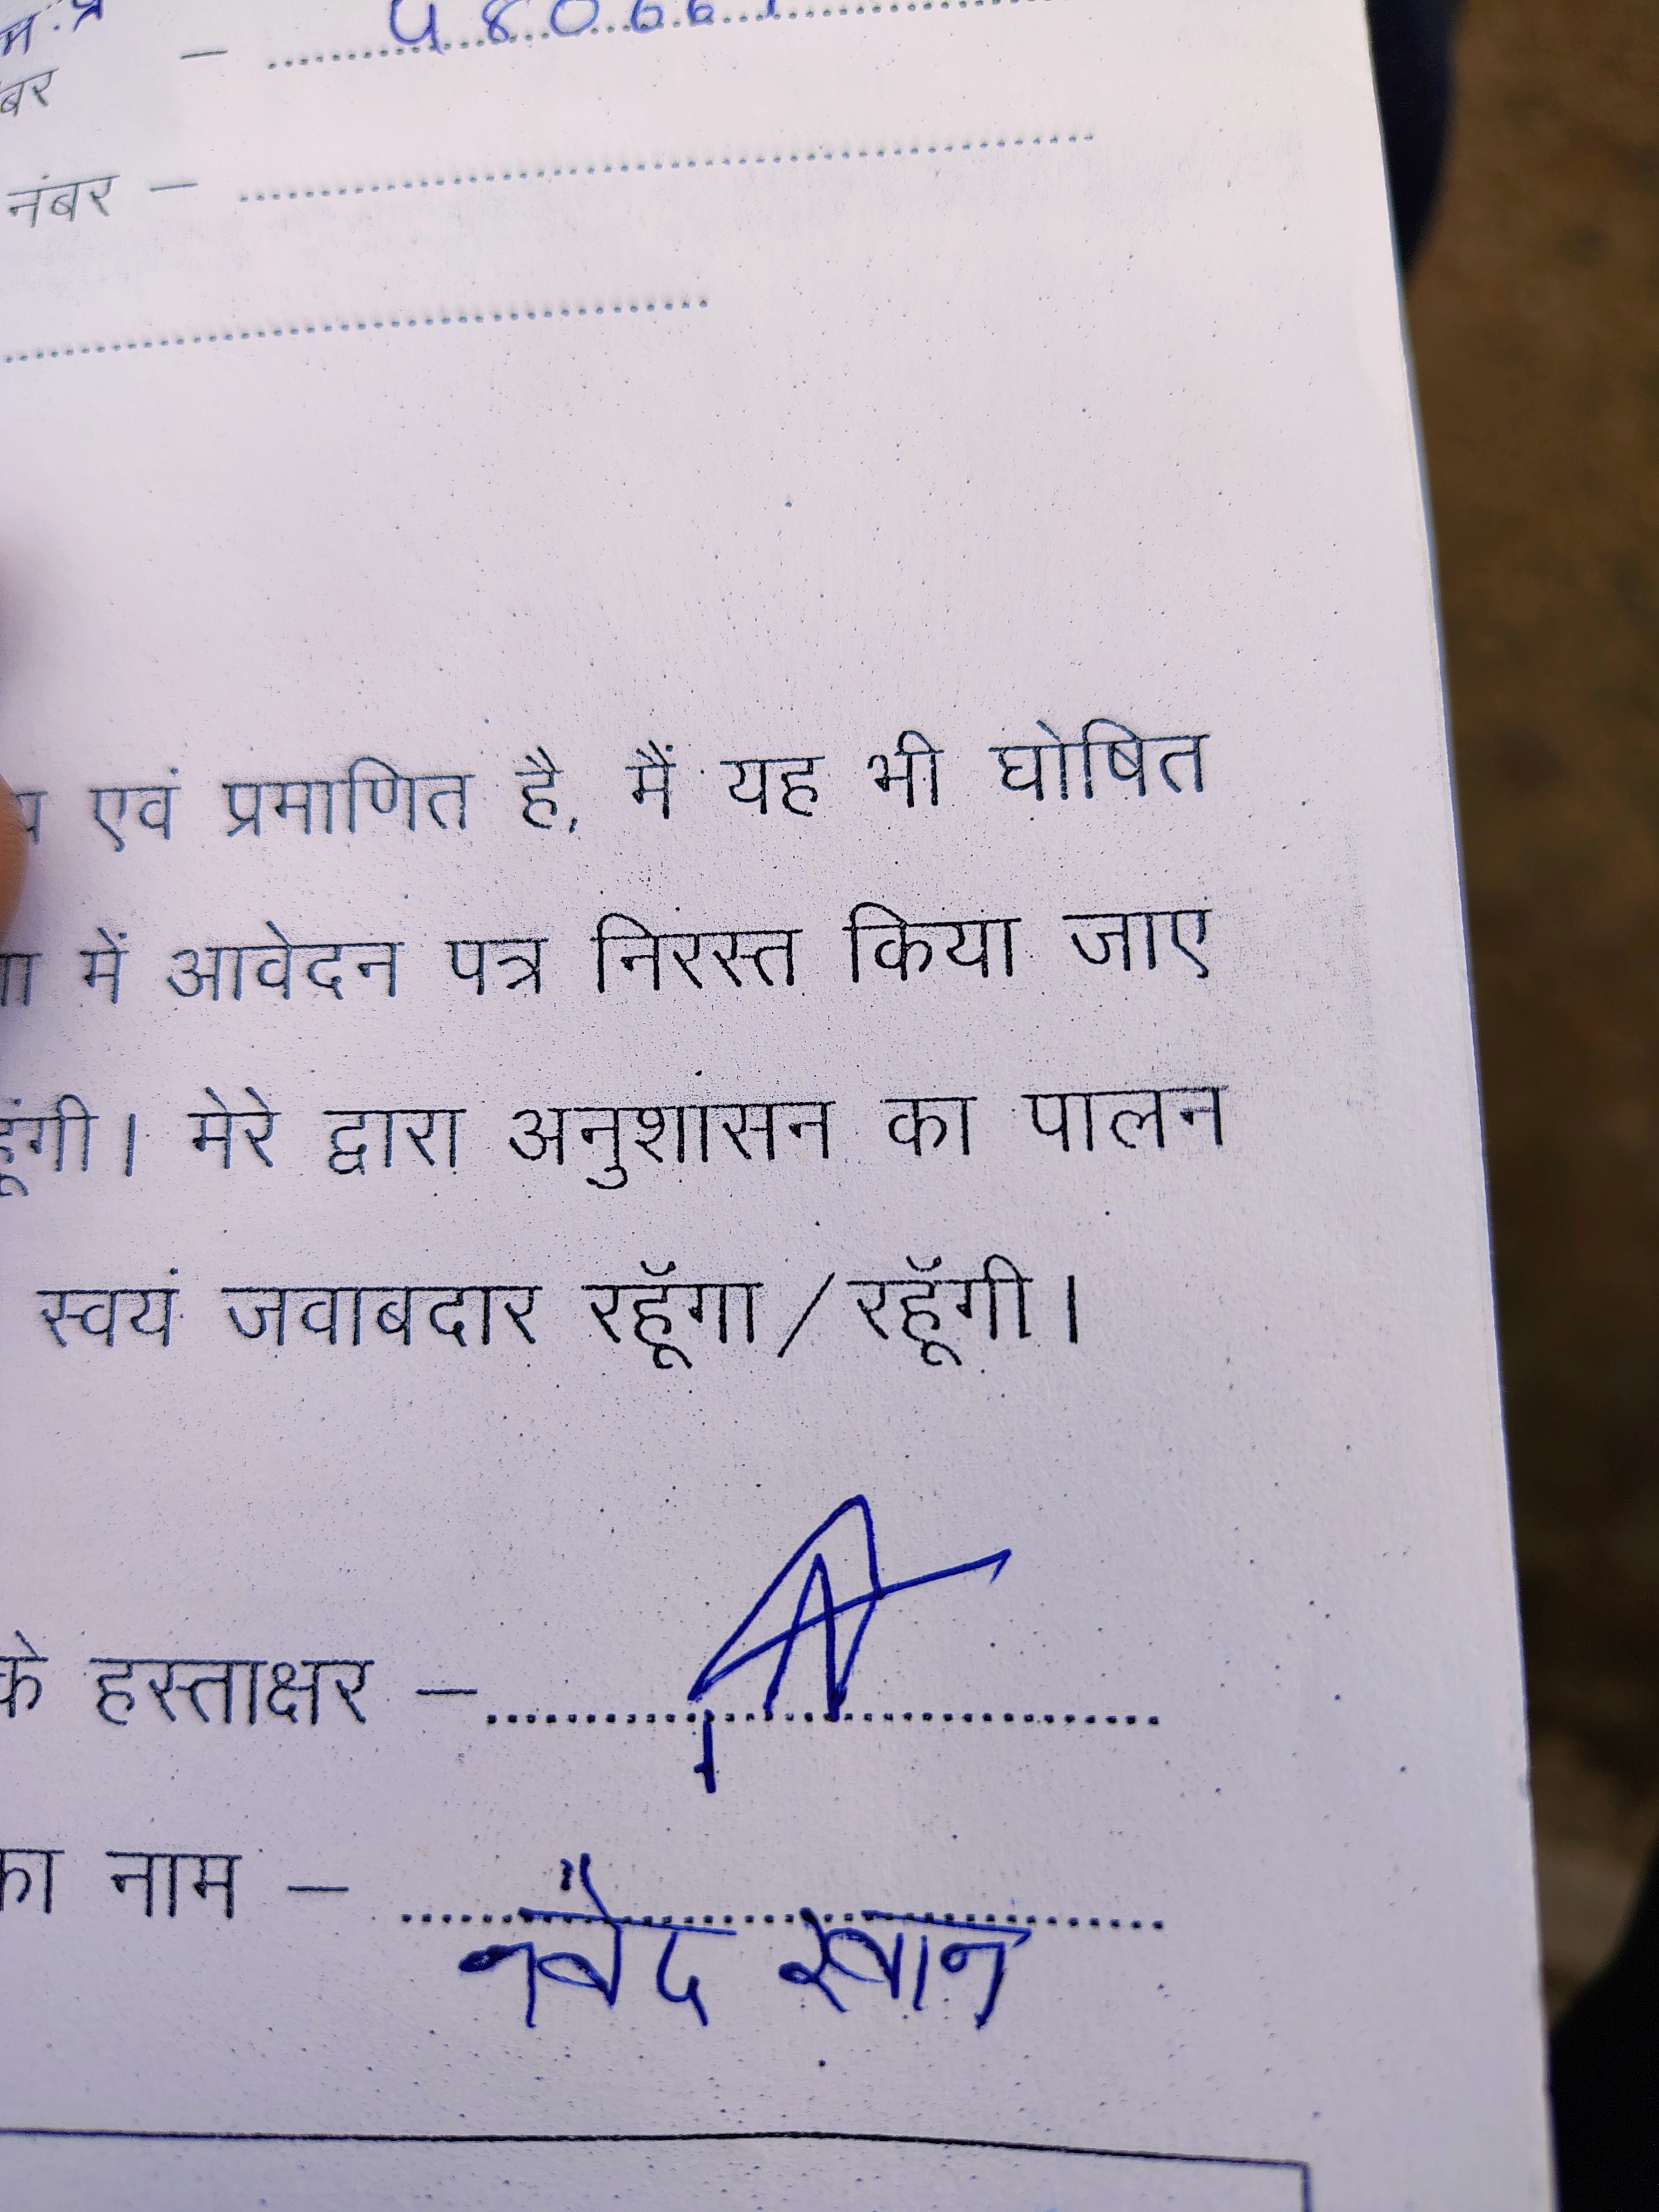 म.प्र
– 48066
नंबर –
एवं प्रमाणित है, मैं यह भी घोषित
में आवेदन पत्र निरस्त किया जाए
हूंगी। मेरे द्वारा अनुशासन का पालन
स्वयं जवाबदार रहूॅगा / रहूॅगी।
के हस्ताक्षर –
का नाम –
नवेद खान